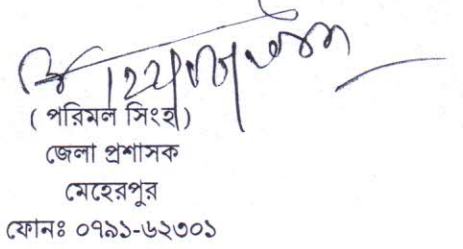 ( পরিমল সিংহ )
জেলা প্রশাসক
মেহেরপুর
ফোনঃ ০৭৯১-৬২৩০১